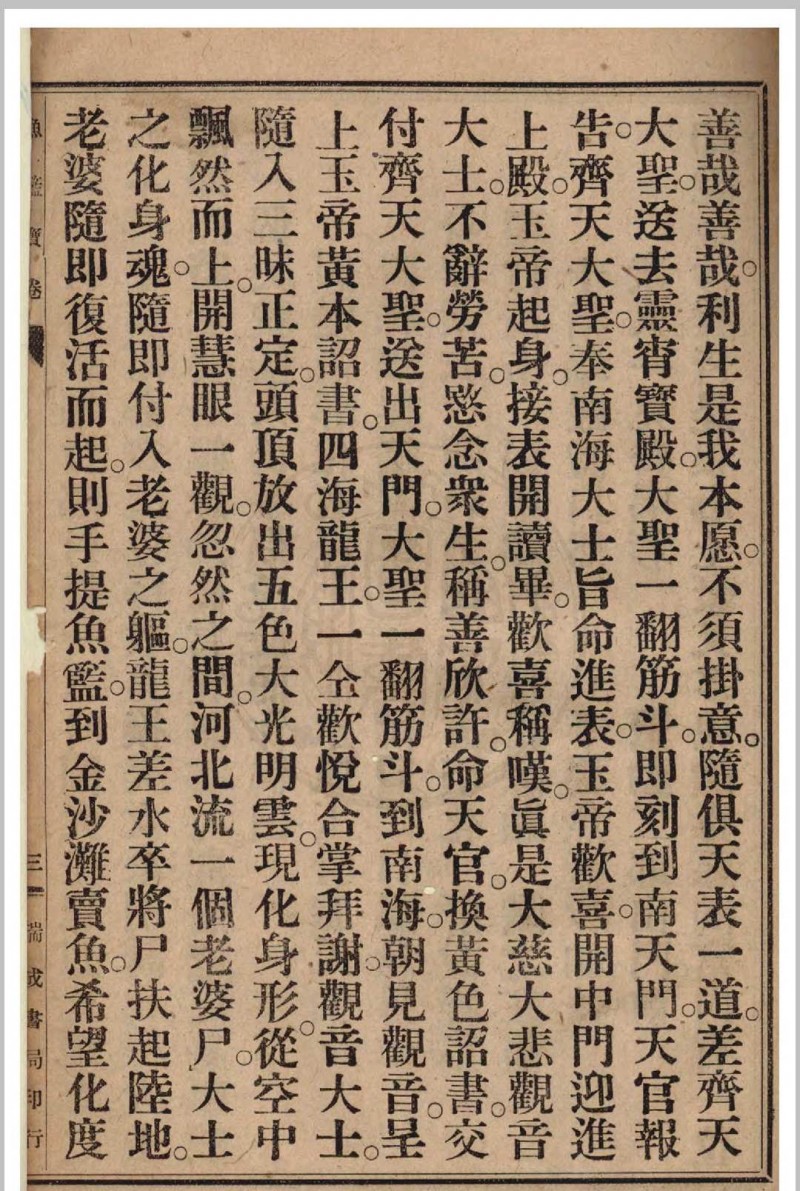 善哉善哉。利生是我本愿。不須掛意。隨俱天表一道。差齊天
大聖。送去靈宵寶殿。大聖一翻筋斗。即刻到南天門。天官報
告。齊天大聖。奉南海大士旨命進表。玉帝歡喜。開中門迎進
上殿。玉帝起身。接表開讀畢。歡喜稱嘆。眞是大慈大悲觀音
大士。不辭勞苦。愍念衆生。稱善欣許。命天官。換黃色詔書。交
付齊天大聖。送出天門。大聖一翻筋斗。到南海。朝見觀音。呈
上玉帝黃本詔書。四海龍王。一仝歡悅合掌拜謝。觀音大士。
隨入三昧正定。頭頂放出五色大光明雲。現化身形。從空中
飄然而上。開慧眼一觀。忽然之間。河北流一個老婆尸。大士
之化身魂。隨即付入老婆之軀。龍王差水卒將尸扶起陸地。
老婆隨即復活而起。則手提魚籃。到金沙灘賣魚。希望化度
魚籃寶卷
三
瑞成書局印行